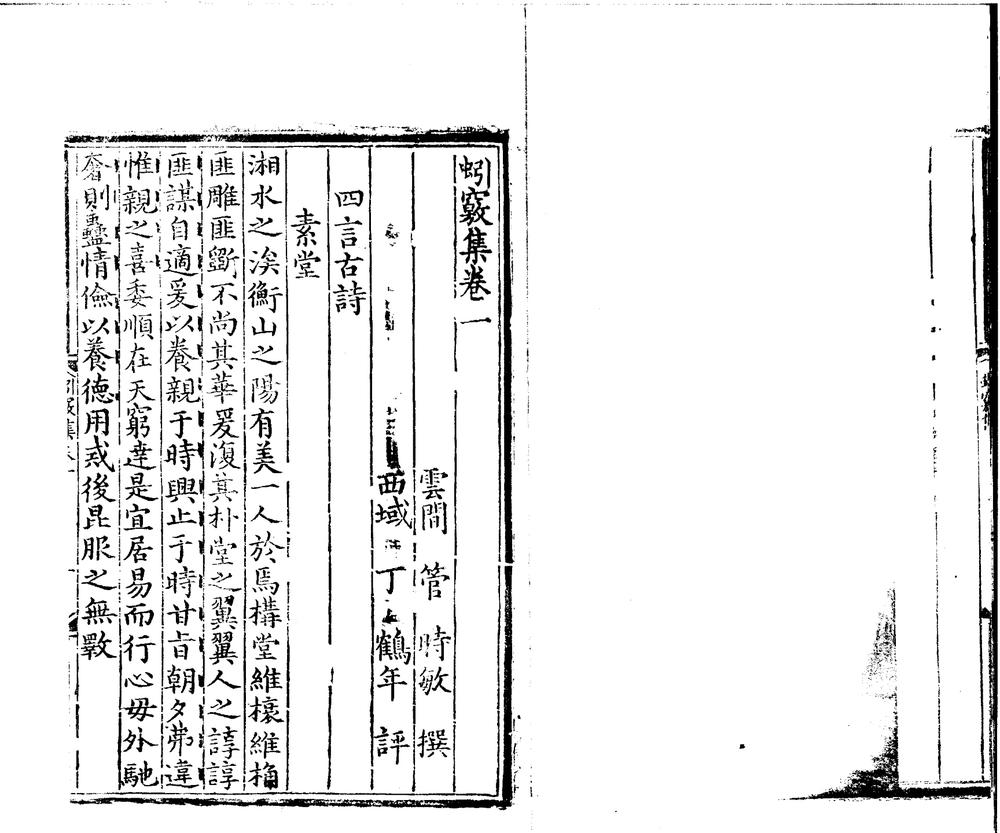 蚓竅集卷一
雲間 管 時敏 撰
西域 丁 鶴年 評
四言古詩
素堂
湘水之涘衡山之陽有美一人於焉構堂維榱維桷
匪雕匪斵不尚其華爰復其朴堂之翼翼人之諄諄
匪謀自適爰以養親于時興止于時甘旨朝夕弗違
惟親之喜委順在天窮達是宜居易而行心毋外馳
奢則蠱情儉以養德用戒後昆服之無斁